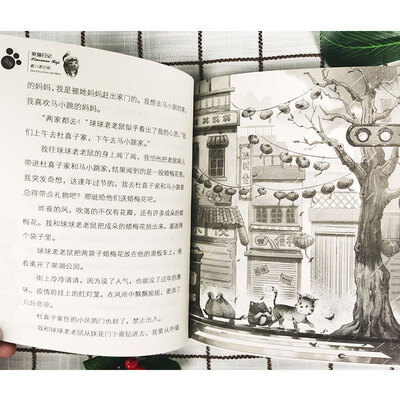 笑猫日记
的妈妈，我是被她妈妈赶出家门的。我想去马小跳的家，
我喜欢马小跳的妈妈。
“两家都去！”球球老老鼠似乎看出了我的心思，“我
们上午去杜真子家，下午去马小跳家。”
我往球球老老鼠的身上闻了闻，我怕他把老鼠味儿
带进杜真子家和马小跳家，结果闻到的是一股蜡梅花香。
我突发奇想，这逢年过节的，我去杜真子家和马小跳家
总得带点礼物吧？那就给他们送蜡梅花吧。
昨夜的风，吹落的不仅有花瓣，还有许多成朵的蜡
梅花。我和球球老老鼠把成朵的蜡梅花挑出来，装进两
个袋子里。
球球老老鼠把两袋子蜡梅花放在他的滑板车上，拖
着离开了翠湖公园。
街上冷冷清清，因为没了人气，也就没了过年的喜
味。疫情前挂上的红灯笼，在风雨中飘飘摇摇，更添了
几分悲凉。
杜真子家住的小区的门也封了，禁止出入。
我和球球老老鼠从铁花门下面钻进去，我要从外墙